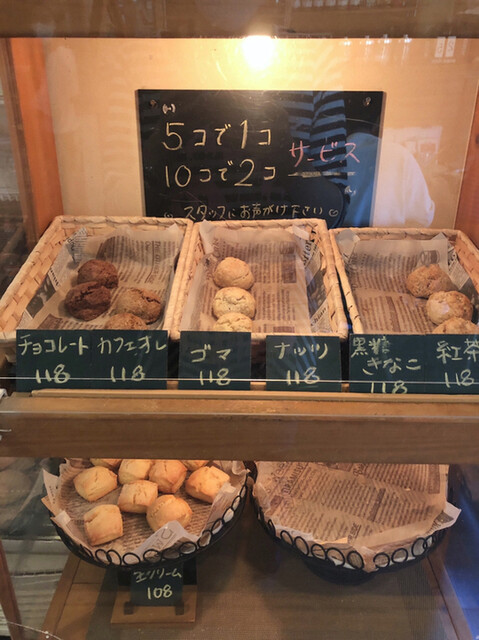 5コで1コ
10コで2コ
サービス
スタッフにお声がけください
チョコレート
118
カフェオレ
118
ゴマ
118
ナッツ
118
黒糖
きなこ
118
紅茶
118
クリーム
108